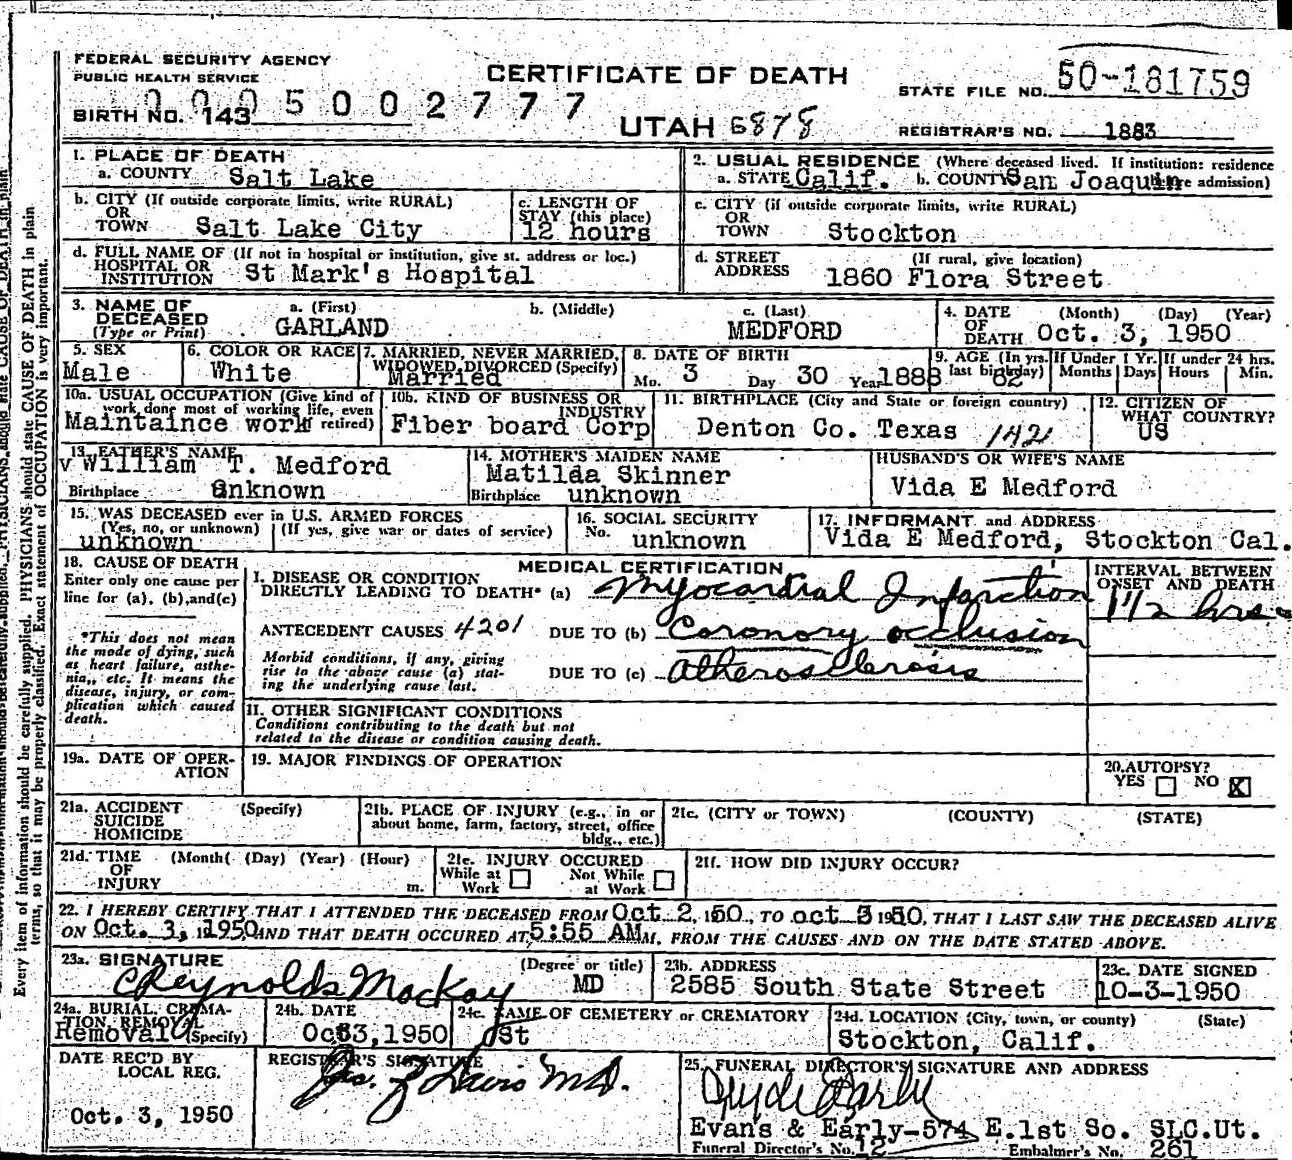 FEDERAL SECURITY AGENCY
PUBLIC HEALTH SERVICE
CERTIFICATE OF DEATH
STATE FILE NO. 50-181759
BIRTH NO. 143 0005002777
UTAH 6878
REGISTRAR'S NO. 1883
1. PLACE OF DEATH
a. COUNTY Salt Lake
2. USUAL RESIDENCE (Where deceased lived. If institution: residence
a. STATE Calif. b. COUNTY San Joaquin admission)
b. CITY (If outside corporate limits, write RURAL)
OR
TOWN Salt Lake City
c. LENGTH OF
STAY (this place)
12 hours
c. CITY (if outside corporate limits, write RURAL)
OR
TOWN Stockton
d. FULL NAME OF (If not in hospital or institution, give st. address or loc.)
HOSPITAL OR
INSTITUTION St Mark's Hospital
d. STREET (If rural, give location)
ADDRESS 1860 Flora Street
3. NAME OF DECEASED (Type or Print)
a. (First) b. (Middle) c. (Last)
GARLAND MEDFORD
4. DATE OF DEATH (Month) (Day) (Year)
Oct. 3, 1950
5. SEX
Male
6. COLOR OR RACE
White
7. MARRIED, NEVER MARRIED,
WIDOWED, DIVORCED (Specify)
Married
8. DATE OF BIRTH
Mo. 3 Day 30 Year 1888
9. AGE (In yrs. last birthday) If Under 1 Yr. If under 24 hrs.
62 Months Days Hours Min.
10a. USUAL OCCUPATION (Give kind of
work done most of working life, even
Maintaince work retired)
10b. KIND OF BUSINESS OR
INDUSTRY
Fiber board Corp
11. BIRTHPLACE (City and State or foreign country)
Denton Co. Texas 1421
12. CITIZEN OF
WHAT COUNTRY?
US
13. FATHER'S NAME
v William T. Medford
Birthplace unknown
14. MOTHER'S MAIDEN NAME
Matilda Skinner
Birthplace unknown
HUSBAND'S OR WIFE'S NAME
Vida E Medford
15. WAS DECEASED ever in U.S. ARMED FORCES
(Yes, no, or unknown) (If yes, give war or dates of service)
unknown
16. SOCIAL SECURITY
No. unknown
17. INFORMANT and ADDRESS
Vida E Medford, Stockton Cal.
18. CAUSE OF DEATH
Enter only one cause per
line for (a), (b), and (c)
*This does not mean
the mode of dying, such
as heart failure, asthe-
nia,, etc. It means the
disease, injury, or com-
plication which caused
death.
MEDICAL CERTIFICATION
I. DISEASE OR CONDITION
DIRECTLY LEADING TO DEATH* (a) Myocardial Infarction
ANTECEDENT CAUSES 4201 DUE TO (b) Coronory occlusion
Morbid conditions, if any, giving
rise to the above cause (a) stat-
ing the underlying cause last.
DUE TO (c) Atherosclerosis
INTERVAL BETWEEN
ONSET AND DEATH
11/2 hrs
II. OTHER SIGNIFICANT CONDITIONS
Conditions contributing to the death but not
related to the disease or condition causing death.
19a. DATE OF OPER-
ATION
19. MAJOR FINDINGS OF OPERATION
20. AUTOPSY?
YES NO X
21a. ACCIDENT (Specify)
SUICIDE
HOMICIDE
21b. PLACE OF INJURY (e.g., in or
about home, farm, factory, street, office
bldg., etc.)
21c. (CITY or TOWN) (COUNTY) (STATE)
21d. TIME (Month( (Day) (Year) (Hour)
OF
INJURY m.
21e. INJURY OCCURED
While at Not While
Work at Work
21f. HOW DID INJURY OCCUR?
22. I HEREBY CERTIFY THAT I ATTENDED THE DECEASED FROM Oct 2, 1950, TO oct 3 1950, THAT I LAST SAW THE DECEASED ALIVE
ON Oct. 3, 1950 AND THAT DEATH OCCURED AT 5:55 AM m. FROM THE CAUSES AND ON THE DATE STATED ABOVE.
23a. SIGNATURE (Degree or title)
CReynolds Mackay MD
23b. ADDRESS
2585 South State Street
23c. DATE SIGNED
10-3-1950
24a. BURIAL, CREMA-
TION, REMOVAL
Removal (Specify)
24b. DATE
Oct 3, 1950
24c. NAME OF CEMETERY or CREMATORY
24d. LOCATION (City, town, or county) (State)
Stockton, Calif.
DATE REC'D BY
LOCAL REG.
Oct. 3, 1950
REGISTRAR'S SIGNATURE
25. FUNERAL DIRECTOR'S SIGNATURE AND ADDRESS
Clyde Early
Evan's & Early-574 E.1st So. SLC.Ut.
Funeral Director's No. 12 Embalmer's No. 261
Every item of information should be carefully supplied. PHYSICIANS should state CAUSE OF DEATH in plain
terms, so that it may be properly classified. Exact statement of OCCUPATION is very important.